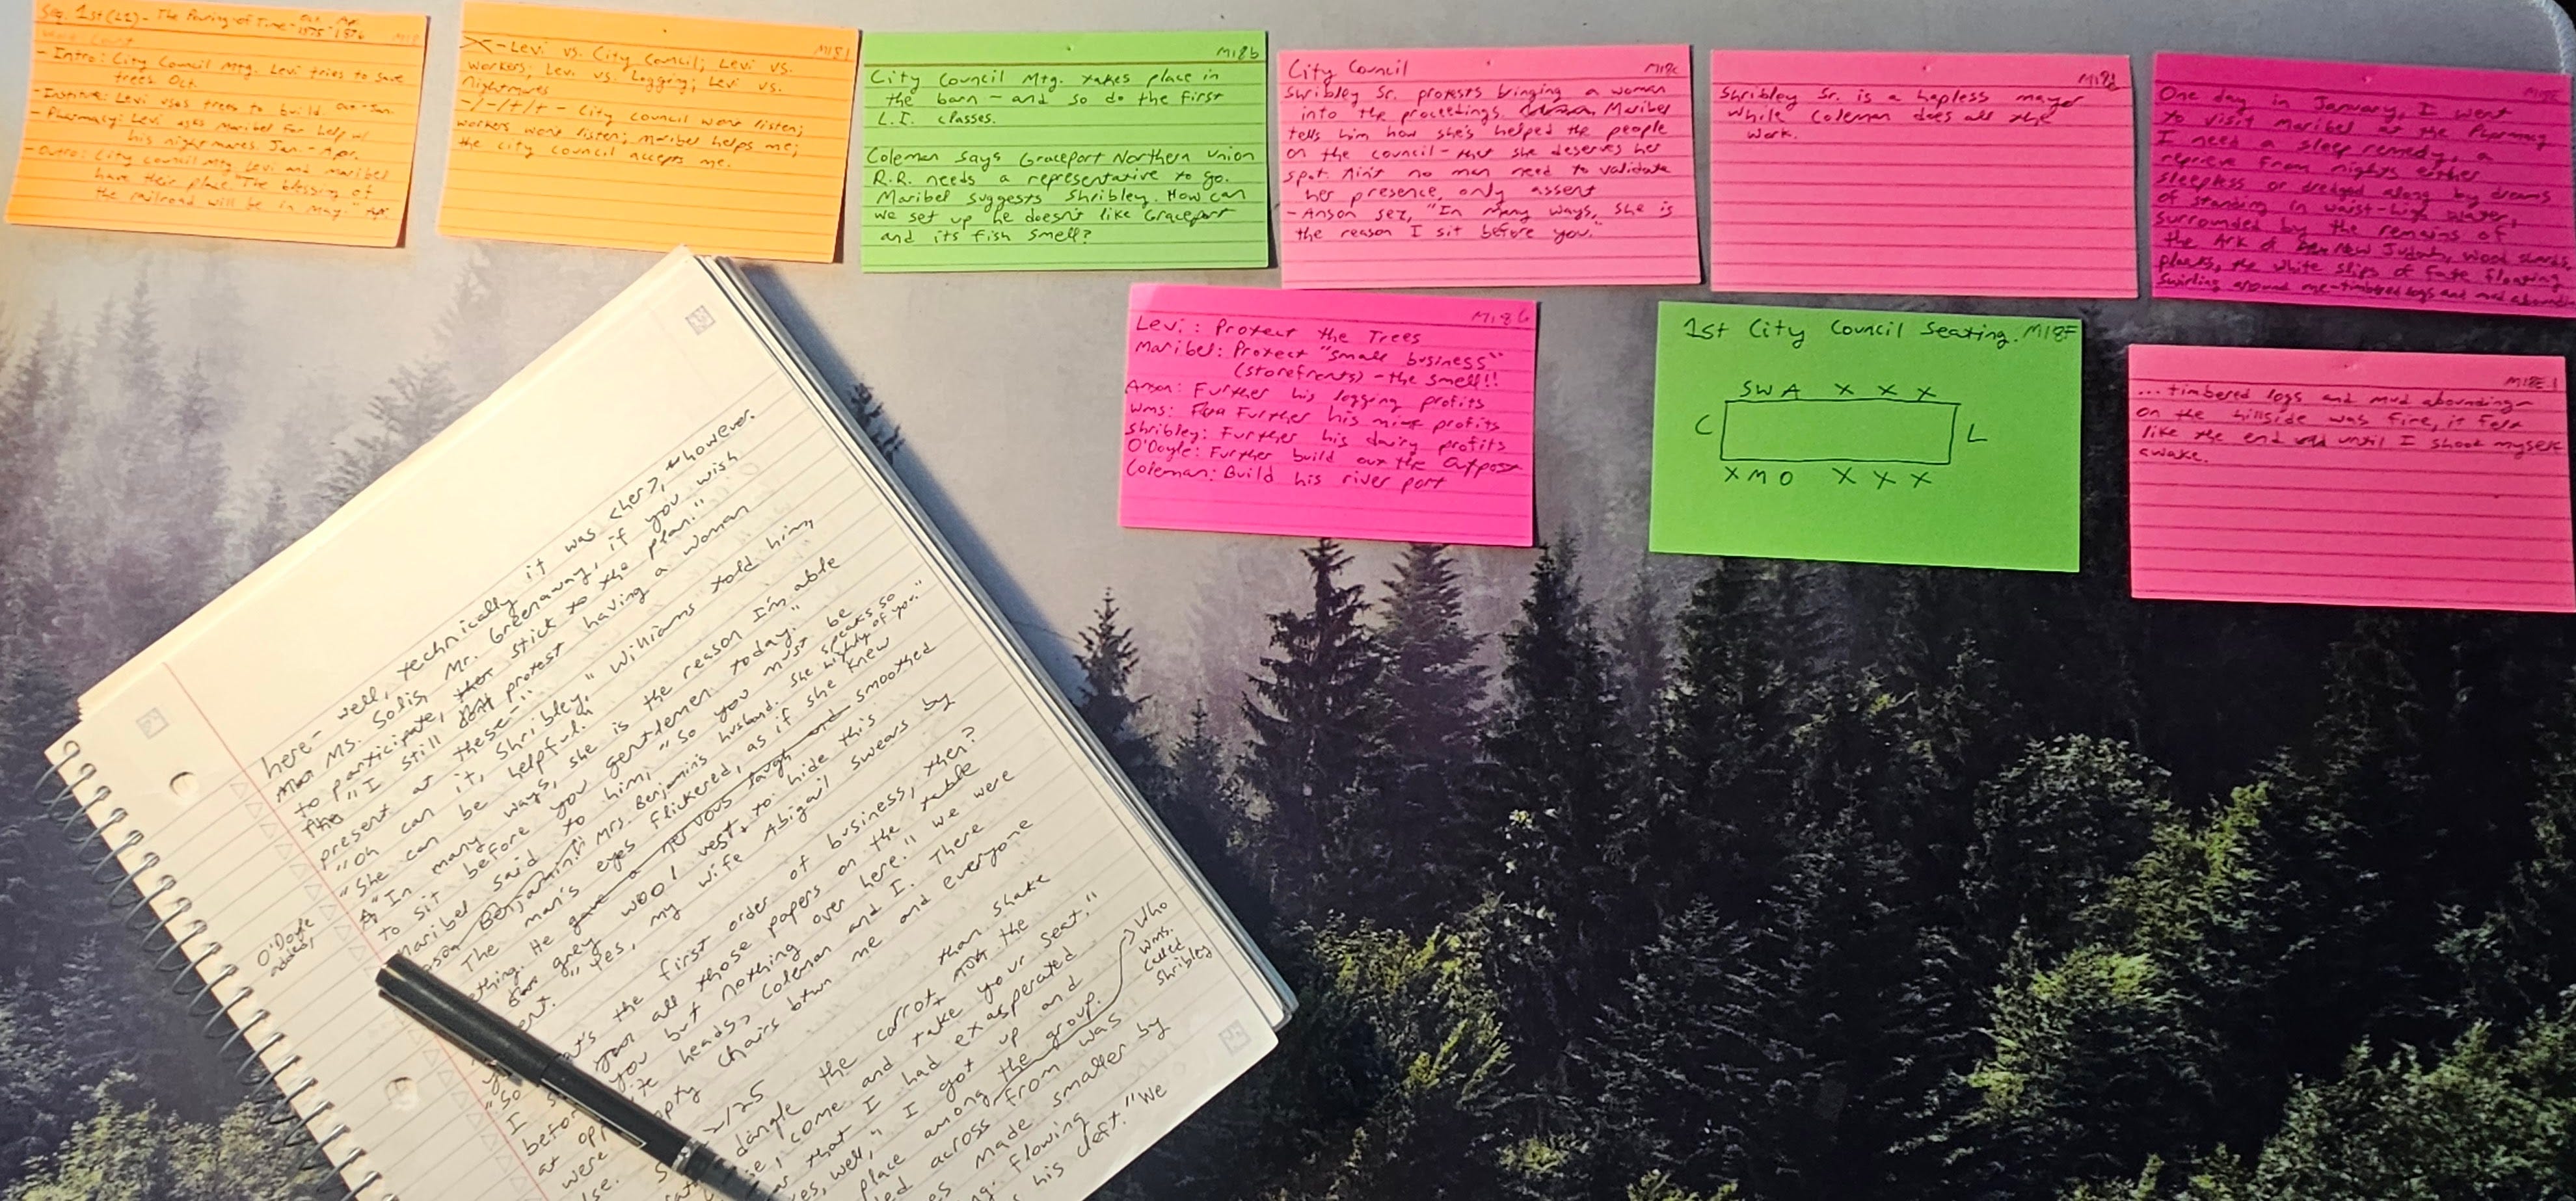 Seq. 1st (L2) - The Pouring of Time - Oct. 1875 - Apr. 1876
M18
- Intro: City Council Mtg. Levi tries to save
trees. Oct.
- Institute: Levi uses trees to build. Oct-Jan.
- Pharmacy: Levi asks Maribel for help w/
his nightmares. Jan. - Apr.
- Outro: City Council Mtg Levi and Maribel
have their place. "The blessing of
the railroad will be in May." Apr.
M18.1
X - Levi vs. City Council; Levi vs.
workers; Levi vs. Logging; Levi vs.
nightmares
-/-/+/+ - City council won't listen;
workers won't listen; Maribel helps me;
the city council accepts me.
M18b
City Council Mtg. takes place in
the barn - and so do the first
L.I. classes.
Coleman says Graceport Northern Union
R.R. needs a representative to go.
Maribel suggests Shribley. How can
we set up he doesn't like Graceport
and its fish smell?
City Council M18c
Shribley Sr. protests bringing a woman
into the proceedings. Maribel
tells him how she's helped the people
on the council - that she deserves her
spot. Ain't no man need to validate
her presence, only assert
- Anson sez, "In many ways, she is
the reason I sit before you."
M18d
Shribley Sr. is a hapless mayor
while Coleman does all the
work.
M18E
One day in January, I went
to visit Maribel at the Pharmacy
I need a sleep remedy, a
reprieve from nights either
sleepless or dredged along by dreams
of standing in waist-high water,
surrounded by the remains of
the Ark of New Judah, wood shards,
planks, the white slips of fate floating
swirling around me - timbered logs and mud abound
M18G
Levi: Protect the Trees
Maribel: Protect "small business"
(storefronts) - the smell!!
Anson: Further his logging profits
Wms: Further his mine profits
Shribley: Further his dairy profits
O'Doyle: Further build out the Outpost
Coleman: Build his river port
1st City Council Seating. M18F
SWA X X X
C L
X M O X X X
M18E.1
... timbered logs and mud abounding -
on the hillside was fire, it felt
like the end until I shook myself
awake.
here - well, technically it was <her>, however.
Ms. Solis, Mr. Greenaway, if you wish
to participate, stick to the plan."
"I still protest having a woman
present at these-"
"Oh can it, Shribley," Williams told him,
"She can be helpful."
O'Doyle
added,
A "In many ways, she is the reason I'm able
to sit before you gentlemen today."
Maribel said to him, "So you must be
Benjamin! Mrs. Benjamin's husband. She speaks so
highly of you."
The man's eyes flickered, as if she knew
He gave a nervous laugh and smoothed
grey wool vest, to hide this
"Yes, my wife Abigail swears by
the first order of business, then?
all those papers on the table
you but nothing over here." we were
heads, Coleman and I. There
chairs btwn me and everyone
/25
dangle the carrot than shake
come and take your seat."
that I had exasperated
well," I got up and
place among the group.
across from was
Who
Wms.
called
Shribley
made smaller by
Flowing
his cleft. "We